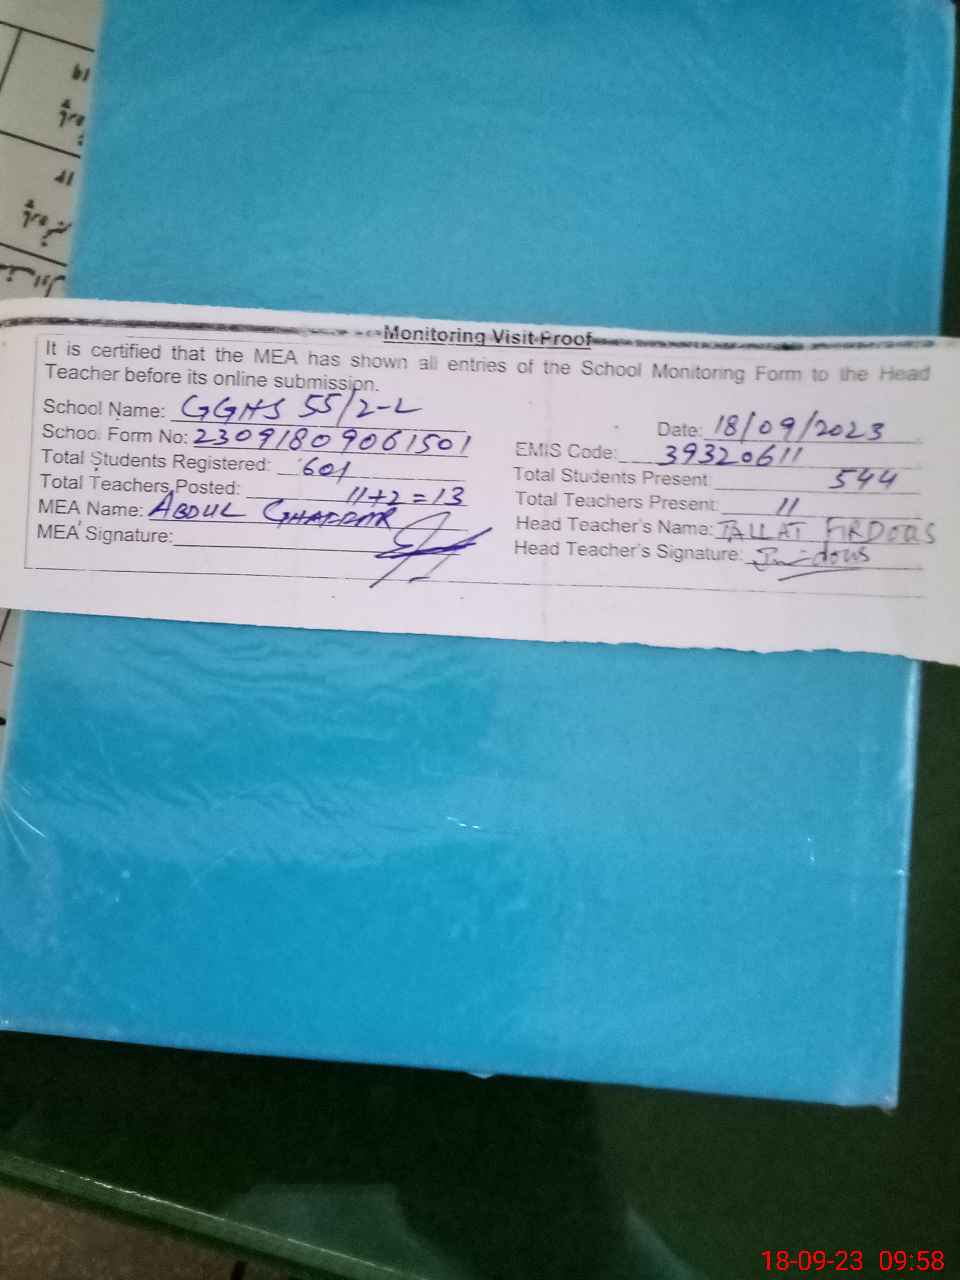 Monitoring Visit Proof
It is certified that the MEA has shown all entries of the School Monitoring Form to the Head
Teacher before its online submission.
School Name: GGHS 55/2-L
Date: 18/09/2023
School Form No: 23091809061501
EMIS Code: 39320611
Total Students Registered: 601
Total Students Present: 544
Total Teachers Posted: 11+2=13
Total Teachers Present: 11
MEA Name: ABDUL GHAFFAR
Head Teacher's Name: TALLAT FIRDOUS
MEA Signature:
Head Teacher's Signature:
18-09-23 09:58